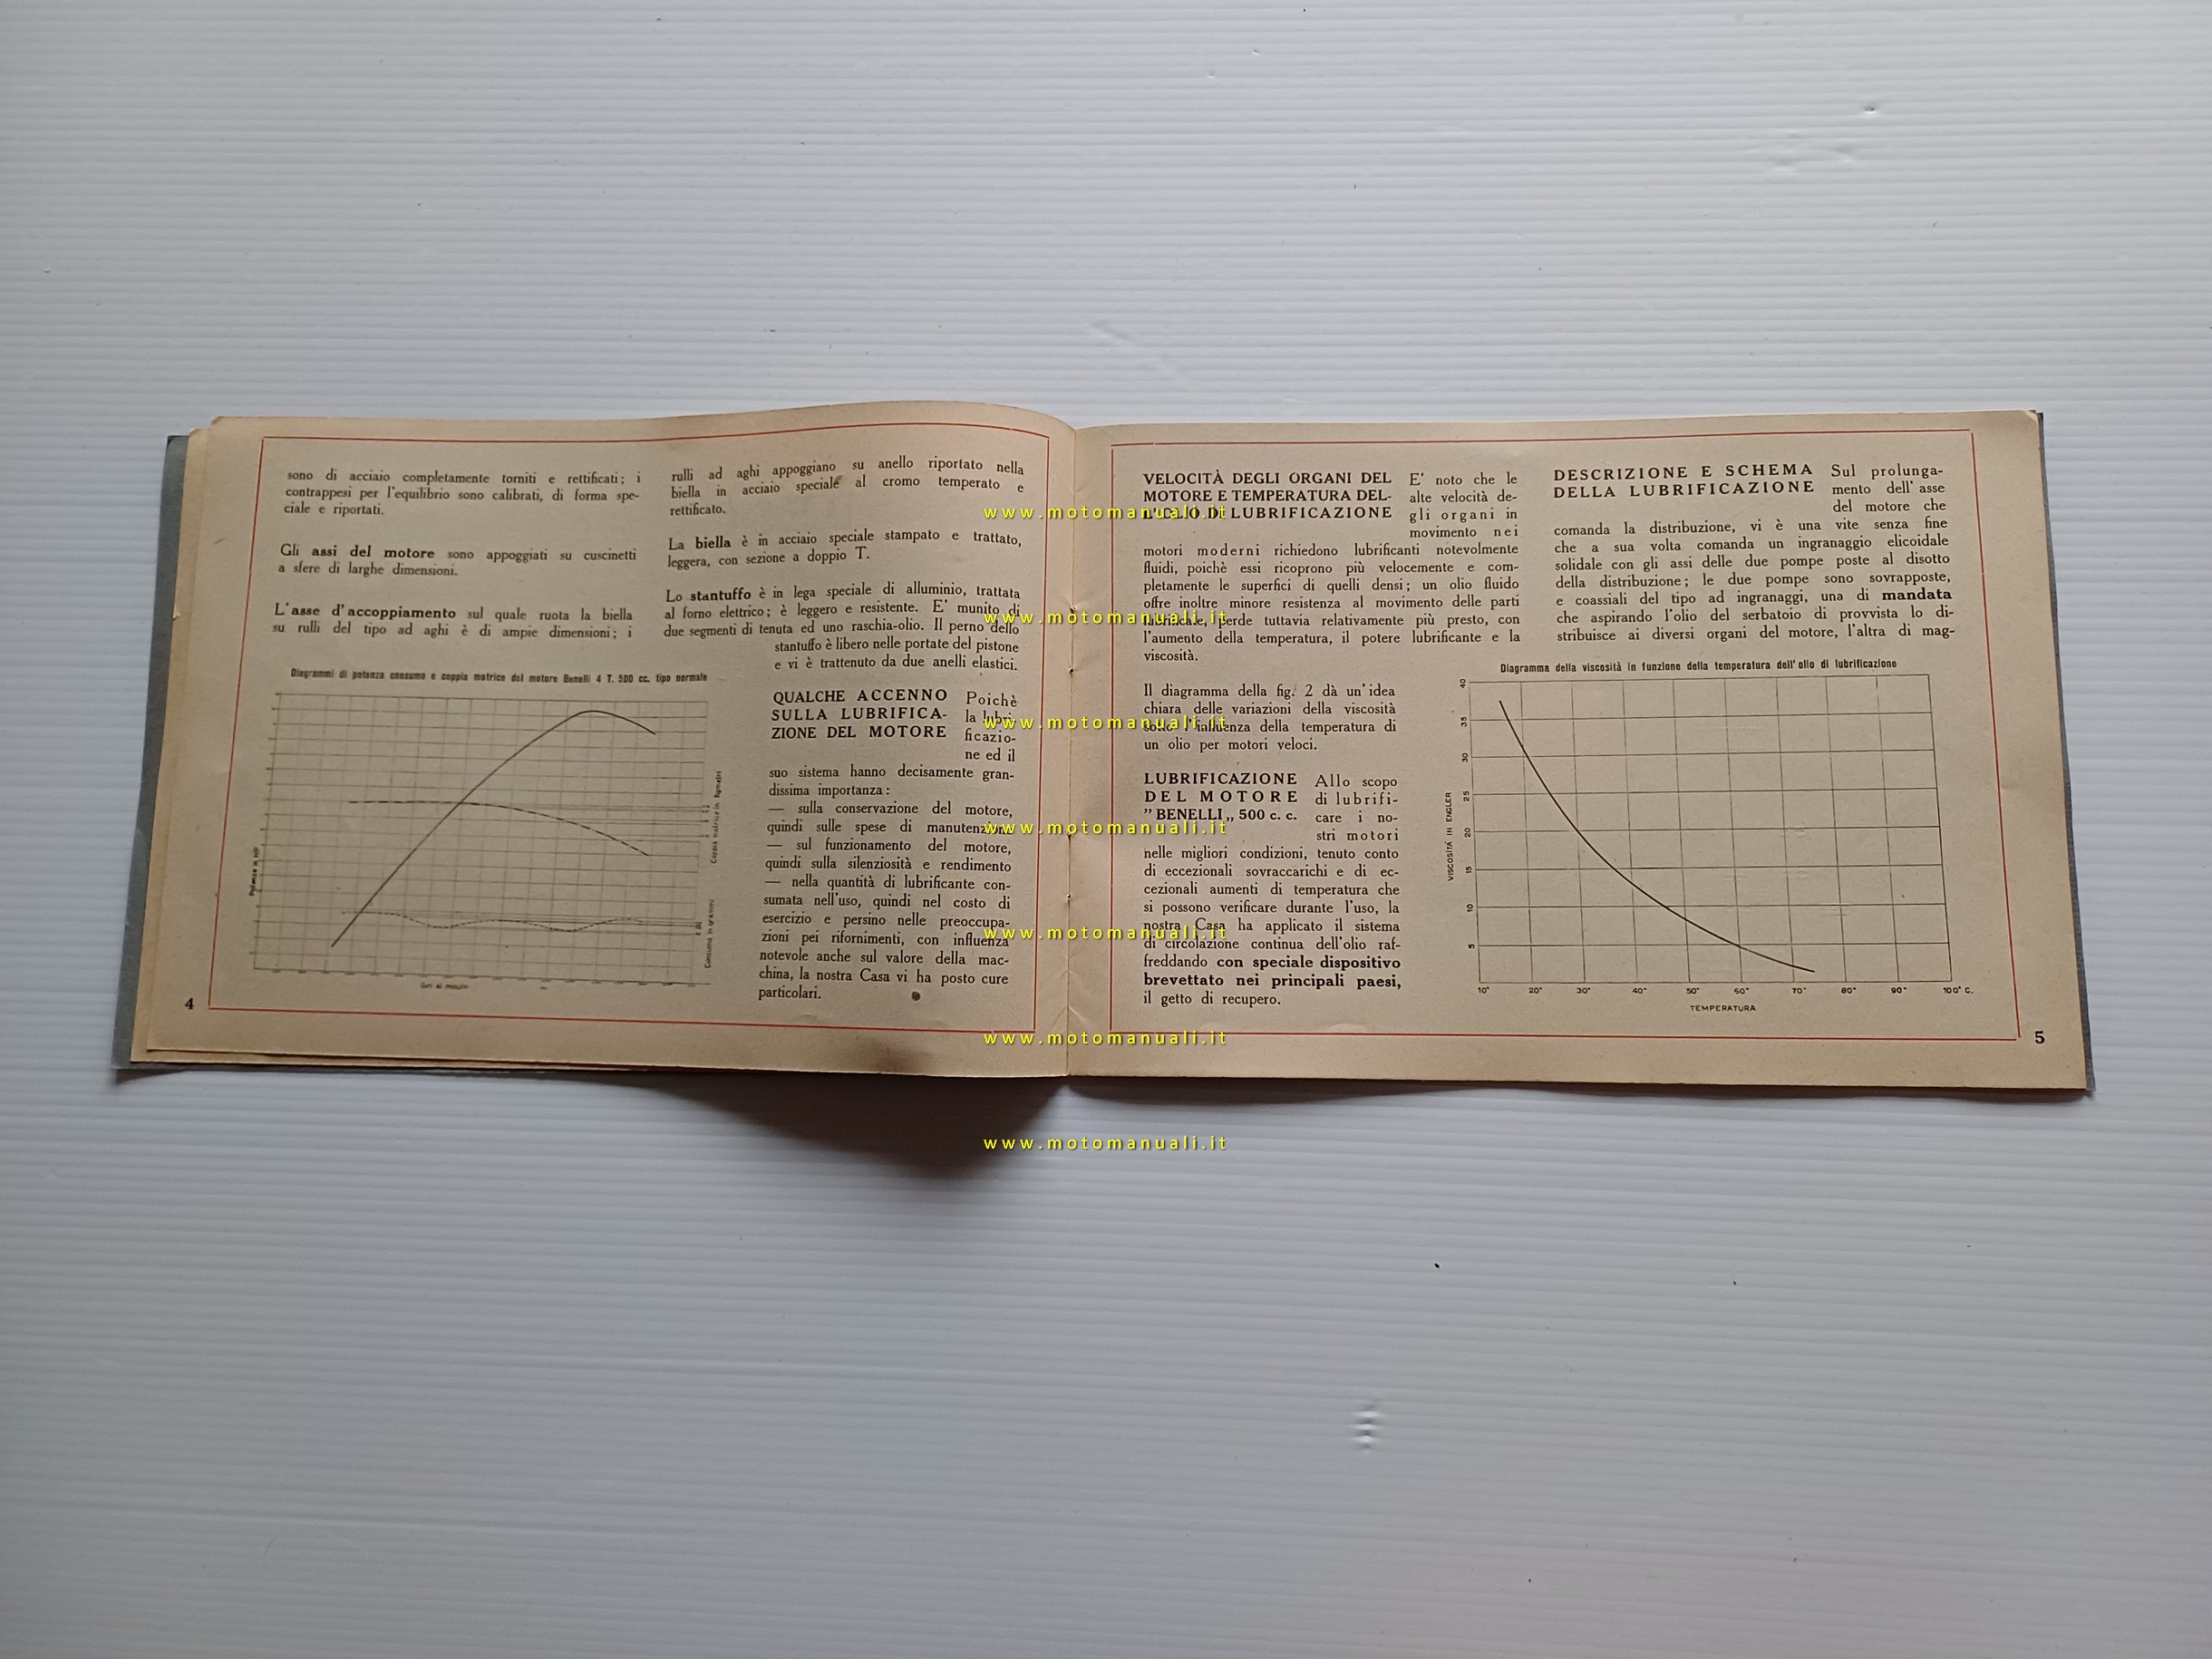 sono di acciaio completamente torniti e rettificati; i
contrappesi per l'equilibrio sono calibrati, di forma spe-
ciale e riportati.
Gli assi del motore sono appoggiati su cuscinetti
a sfere di larghe dimensioni.
L'asse d'accoppiamento sul quale ruota la biella
su rulli del tipo ad aghi è di ampie dimensioni; i
rulli ad aghi appoggiano su anello riportato nella
biella in acciaio speciale al cromo temperato e
rettificato.
La biella è in acciaio speciale stampato e trattato,
leggera, con sezione a doppio T.
Lo stantuffo è in lega speciale di alluminio, trattata
al forno elettrico; è leggero e resistente. E' munito di
due segmenti di tenuta ed uno raschia-olio. Il perno dello
stantuffo è libero nelle portate del pistone
e vi è trattenuto da due anelli elastici.
Diagrammi di potenza consumo e coppia motrice del motore Benelli 4 T. 500 cc. tipo normale
Potenza in
Coppia motrice in Kgmetri
Consumo in grammi
Giri al minuto
QUALCHE ACCENNO
SULLA LUBRIFICA-
ZIONE DEL MOTORE
Poichè
la lubri-
ficazio-
ne ed il
suo sistema hanno decisamente gran-
dissima importanza:
— sulla conservazione del motore,
quindi sulle spese di manutenzione
— sul funzionamento del motore,
quindi sulla silenziosità e rendimento
— nella quantità di lubrificante con-
sumata nell'uso, quindi nel costo di
esercizio e persino nelle preoccupa-
zioni pei rifornimenti, con influenza
notevole anche sul valore della mac-
china, la nostra Casa vi ha posto cure
particolari.
4
VELOCITÀ DEGLI ORGANI DEL
MOTORE E TEMPERATURA DEL-
L'OLIO DI LUBRIFICAZIONE
E' noto che le
alte velocità de-
gli organi in
movimento nei
motori moderni richiedono lubrificanti notevolmente
fluidi, poichè essi ricoprono più velocemente e com-
pletamente le superfici di quelli densi; un olio fluido
offre inoltre minore resistenza al movimento delle parti
lubrificate, perde tuttavia relativamente più presto, con
l'aumento della temperatura, il potere lubrificante e la
viscosità.
Il diagramma della fig. 2 dà un'idea
chiara delle variazioni della viscosità
sotto l'influenza della temperatura di
un olio per motori veloci.
LUBRIFICAZIONE
DEL MOTORE
" BENELLI „ 500 c. c.
Allo scopo
di lubrifi-
care i no-
stri motori
nelle migliori condizioni, tenuto conto
di eccezionali sovraccarichi e di ec-
cezionali aumenti di temperatura che
si possono verificare durante l'uso, la
nostra Casa ha applicato il sistema
di circolazione continua dell'olio raf-
freddando con speciale dispositivo
brevettato nei principali paesi,
il getto di recupero.
DESCRIZIONE E SCHEMA
DELLA LUBRIFICAZIONE
Sul prolunga-
mento dell'asse
del motore che
comanda la distribuzione, vi è una vite senza fine
che a sua volta comanda un ingranaggio elicoidale
solidale con gli assi delle due pompe poste al disotto
della distribuzione; le due pompe sono sovrapposte,
e coassiali del tipo ad ingranaggi, una di mandata
che aspirando l'olio del serbatoio di provvista lo di-
stribuisce ai diversi organi del motore, l'altra di mag-
Diagramma della viscosità in funzione della temperatura dell'olio di lubrificazione
40
35
30
25
20
15
10
5
VISCOSITÀ IN ENGLER
10° 20° 30° 40° 50° 60° 70° 80° 90° 100° C.
TEMPERATURA
5
www.motomanuali.it
www.motomanuali.it
www.motomanuali.it
www.motomanuali.it
www.motomanuali.it
www.motomanuali.it
www.motomanuali.it